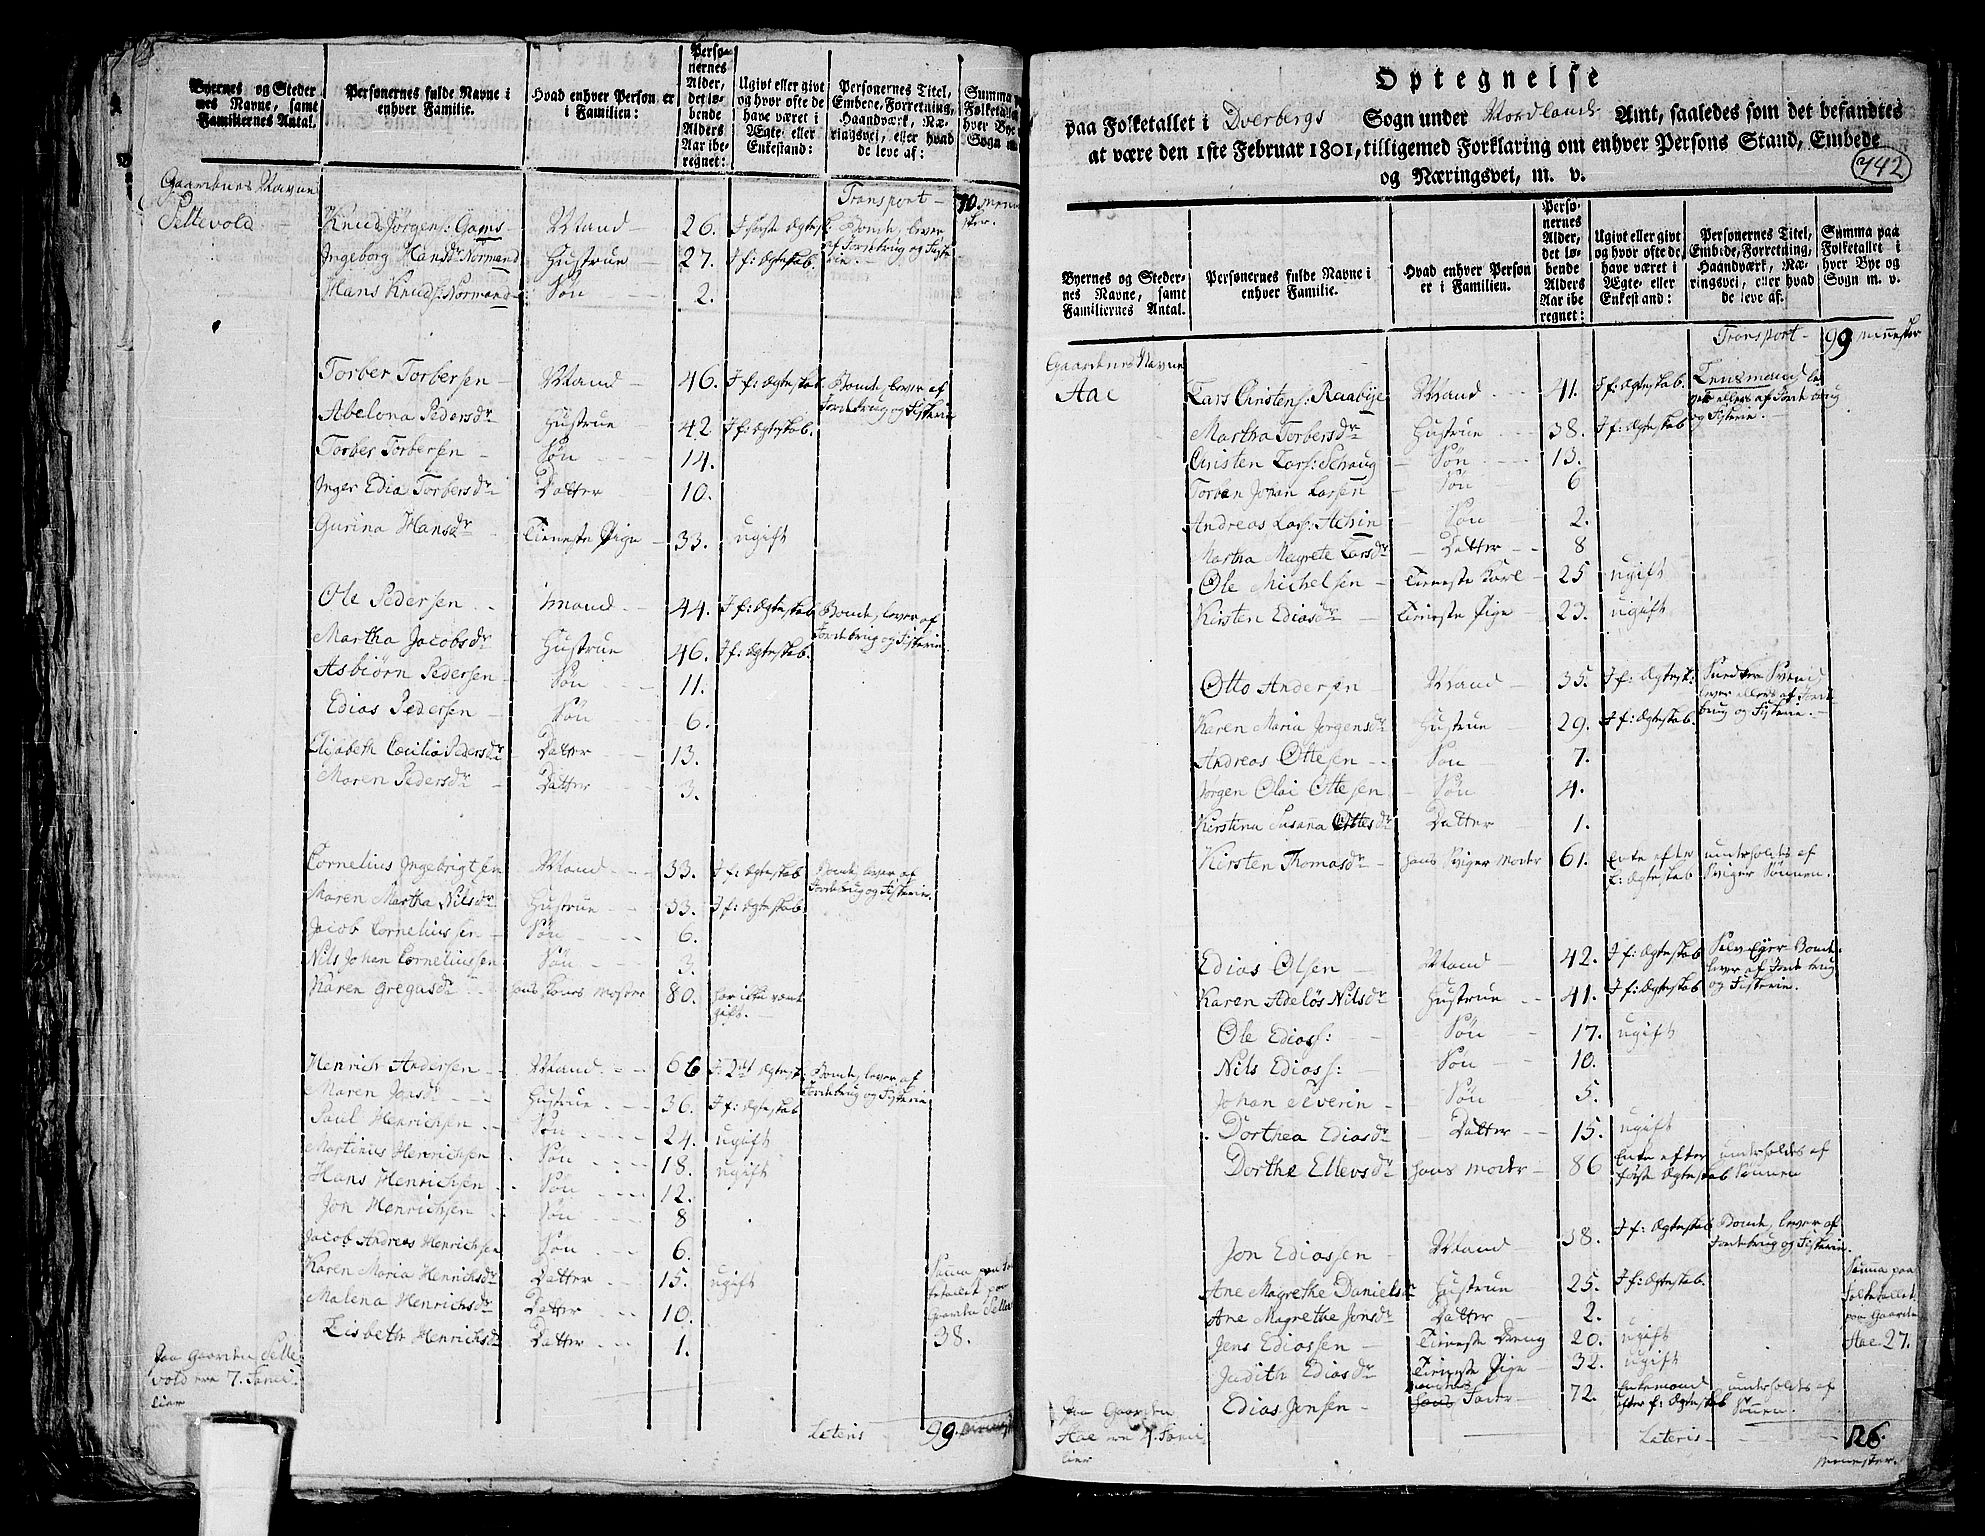 Byernes og Steder
nes Navne, samt
Familiernes Antal.
Personernes fulde Navne i
enhver Familie.
Hvad enhver Person er
i Familien:
Perso-
nernes
Alder,
det lø-
bende
Alders
Aar ibe-
regnet:
Ugivt eller givt
og hvor ofte de
have været i
Ægte- eller
Enkestand:
Personernes Titel,
Embede, Forretning,
Haandværk, Næ-
ringsvei, eller hvad
de leve af:
Summa
Folketallet
hver Bye
Sogn m.
Gaardenes Navne
Transport -
Sellevold
Knud Jörgens: Gams Mand 26. I förste Ægtesk: Bonde, lever
af Jordebrug og Fiske
rie.
Ingeborg Hansdr Normand Hustrue 27. I f: Ægteskab.
Hans Knuds: Normand Søn 2.
Torber Torbersen Mand 46. I f: Ægteskab. Bonde, lever af
Jordebrug og Fiskerie
Abelona Pedersdr Hustrue 42 I f: Ægteskab.
Torber Torbersen Søn 14.
Inger Edia Torbersdr Datter 10.
Gurina Hansdr Tieneste Pige 33. ugift
Ole Pedersen Mand 44. I f: Ægteskab Bonde, lever af
Jordebrug og Fiskerie.
Martha Jacobsdr Hustrue 46. I f: Ægteskab.
Asbiørn Pedersen Søn 11.
Edias Pedersen Søn 6.
Elisabeth Cæcilia Pedersdr Datter 13.
Maren Pedersdr Datter 3.
Cornelius Ingebrigtsen Mand 33. I f: Ægteskab Bonde, lever af
Jordebrug og Fiskerie.
Maren Martha Nilsdr Hustrue 33. I f: Ægteskab
Jacob Corneliussen Søn 6.
Nils Johan Corneliussen Søn 3.
Karen Gregusdr hans Kones Moster 80. har ikke vært
gift.
Henrich Andersen Mand 66 I 2det Ægtesk: Bonde, lever af
Jordebrug og Fiskerie
Maren Jonsdr Hustrue 36. I f: Ægteskab
Paul Henrichsen Søn 24. ugift
Martinus Henrichsen Søn 18. ugift
Hans Henrichsen Søn 12.
Jon Henrichsen Søn 8
Jacob Andreas Henrichsen Søn 6.
Karen Maria Henrichsdr Datter 15. ugift
Malena Henrichsdr Datter 10.
Lisbeth Henrichsdr Datter 1.
Summa paa
Gaarden Selle
38.
paa Gaarden Selle
vold ere 7. Fami
lier
Lateris 99.
Optegnelse
paa Folketallet i Dverbergs Sogn under Nordlands Amt, saaledes som det befandtes
at være den 1ste Februar 1801, tilligemed Forklaring om enhver Persons Stand, Embede
og Næringsvei, m. v.
742
Byernes og Steder-
nes Navne, samt
Familiernes Antal.
Personernes fulde Navne i
enhver Familie.
Hvad enhver Person
er i Familien.
Perso-
nernes
Alder,
det lø-
bende
Alders
Aar ibe-
regnet:
Ugivt eller givt
og hvor ofte de
have været i
Ægte- eller
Enkestand:
Personernes Titel,
Embede, Forretning,
Haandværk, Næ-
ringsvei, eller hvad
de leve af.
Summa paa
Folketallet i
hver Bye og
Sogn m. v.
Transport - 99 Mennesker
Gaardenes Navne
Aae
Lars Christens: Raabÿe Mand 41. I f: Ægteskab. Lensmand le
ver ellers af Jordebrug
og Fiskerie.
Martha Torbersdr Hustrue 38. I f: Ægteskab
Christen Lars: Schaug Søn 13.
Torben Johan Larsen Søn 6
Andreas Lars: Søn 2.
Martha Magrete Larsdr Datter 8
Ole Michelsen Tieneste Karl 25 ugift
Kirsten Ediasdr Tieneste Pige 23. ugift
Otto Andersen Mand 35. I f: Ægtesk:
lever ellers af Jorde
brug og Fiskerie.
Karen Maria Jørgensdr Hustrue 29. I f: Ægteskab
Andreas Ottesen Søn 7.
Jørgen Olai Ottesen Søn 4.
Kirstina Susana Ottesdr Datter 1.
Kirsten Thomasdr hans Sviger Moder 61. Enke efter
f: Ægteskab
underholdes af
Sviger Sønnen.
Edias Olsen Mand 42. I f: Ægteskab Selv Ejer Bonde
lever af Jordebrug
og Fiskerie.
Karen Adelös Nilsdr Hustrue 41. I f: Ægteskab
Ole Edias: Søn 17. ugift
Nils Edias: Søn 10.
Johan Severin Søn 5.
Dorthea Ediasdr Datter 15. ugift
Dorthe Ellevsdr hans Moder 86 Enke efter
første Ægteskab
underholdes af
Sønnen
Jon Ediassen Mand 38. I f: Ægteskab Bonde, lever af
Jordebrug og Fiskerie.
Ane Magrethe Danielsdr Hustrue 25. I f: Ægteskab.
Ane Magrethe Jonsdr Datter 2.
Jens Ediassen Tieneste Dreng 20. ugift
Judith Ediasdr Tieneste Pige 32. ugift
Edias Jensen Fader 72. Enkemand
efter f: Ægteskab
underholdes af
Sønnen.
Summa paa
Folketallet
paa Gaarden
Aae 27.
paa Gaarden
Aae ere 4. Fami
lier
Lateris 126.
Mennesker.